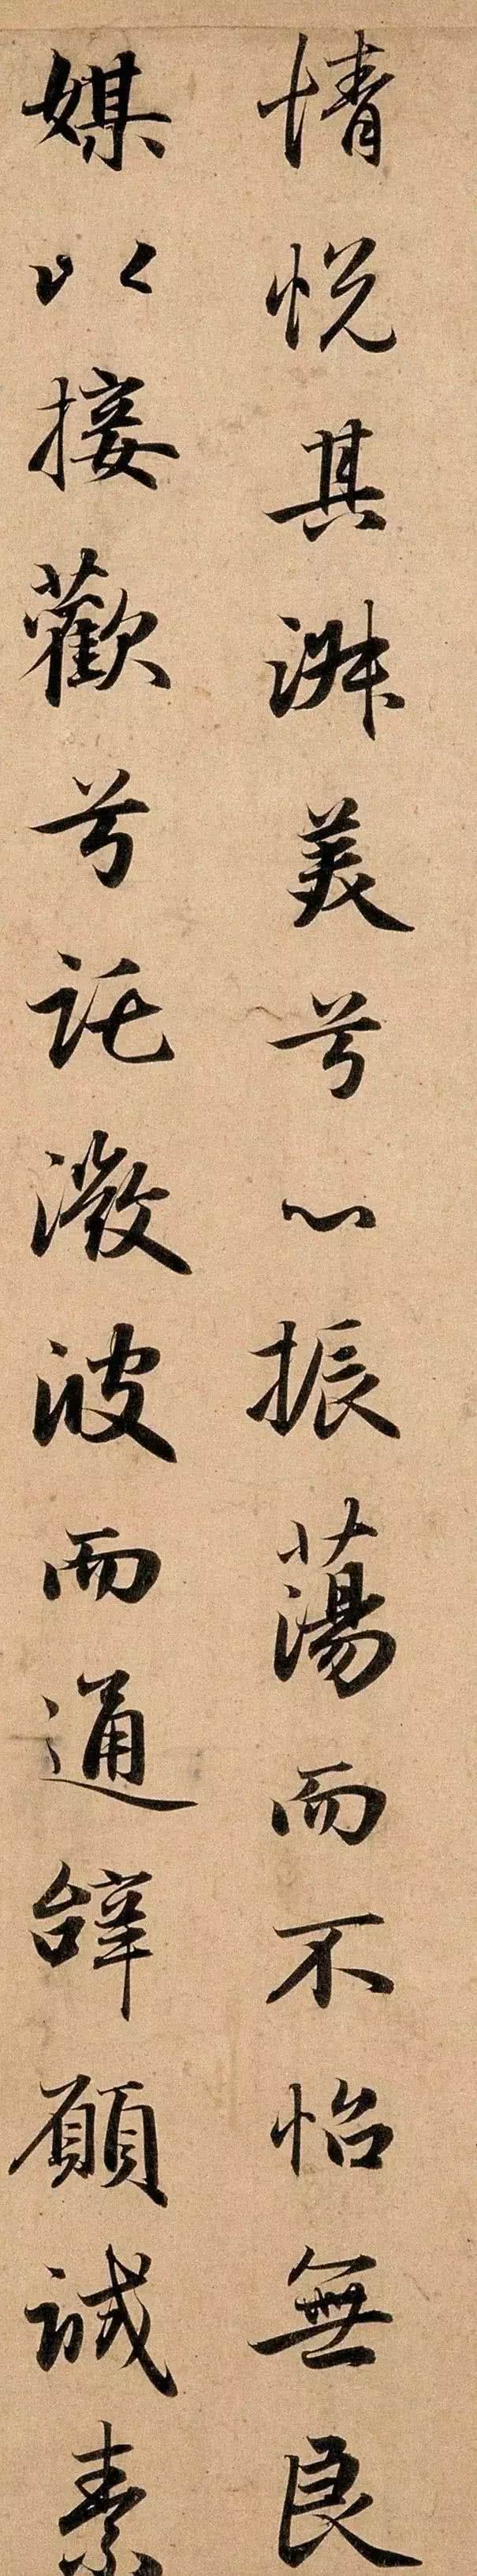 情悅其淑美兮心振蕩而不怡無良
媒以接歡兮託微波而通辭願誠素